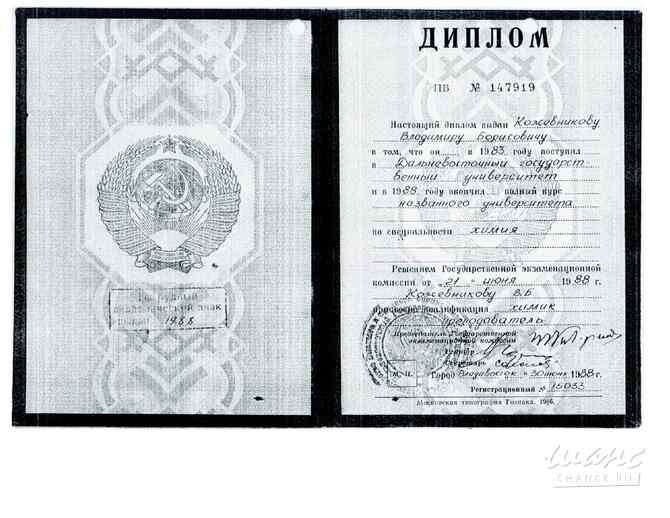 Нагрудный
академический знак
1988
ДИПЛОМ
ПВ № 147919
Настоящий диплом выдан Кожевникову
Владимиру Борисовичу
в том, что он в 1983 году поступил
в Дальневосточный государст-
венный университет
и в 1988 году окончил полный курс
названного университета
по специальности химия
Решением Государственной экзаменационной
комиссии от „21“ июня 1988 г.
Кожевникову В.Б.
присвоена квалификация химик
преподаватель
Председатель Государственной
экзаменационной комиссии
Ректор
Секретарь
М. П. Город Владивосток 30 июня 1988 г.
Регистрационный № 15033
Московская типография Гознака. 1986.
шанс
CHANCE.RU